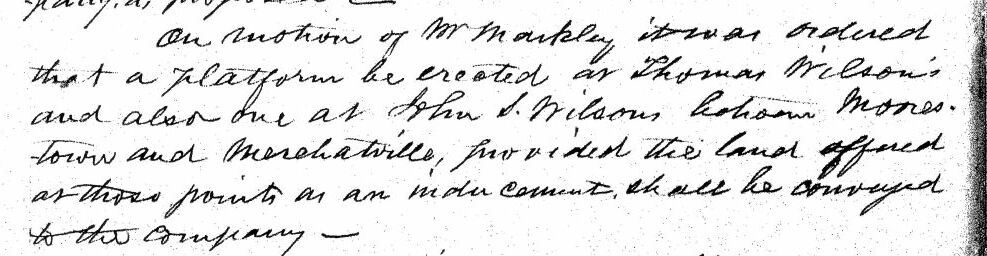 On motion of Mr Markley it was ordered
that a platform be erected at Thomas Wilson's
and also one at John S. Wilsons between Moores-
town and Merchatville, provided the land offered
at those points as an inducement, shall be conveyed
to the company —